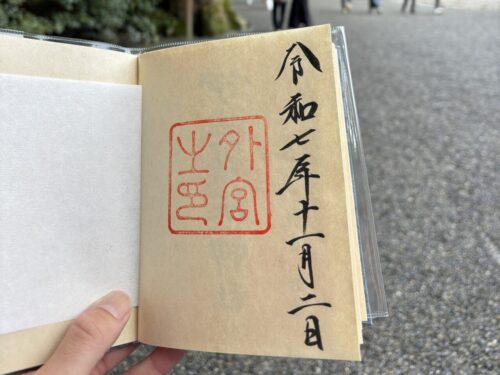 令和七年十一月二日
外宮
之印